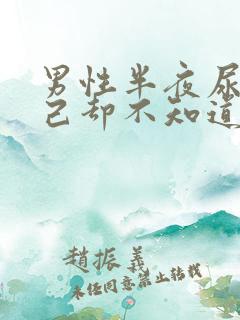 男性半夜尿
己却不知道
趙振義
未经同意禁止转载